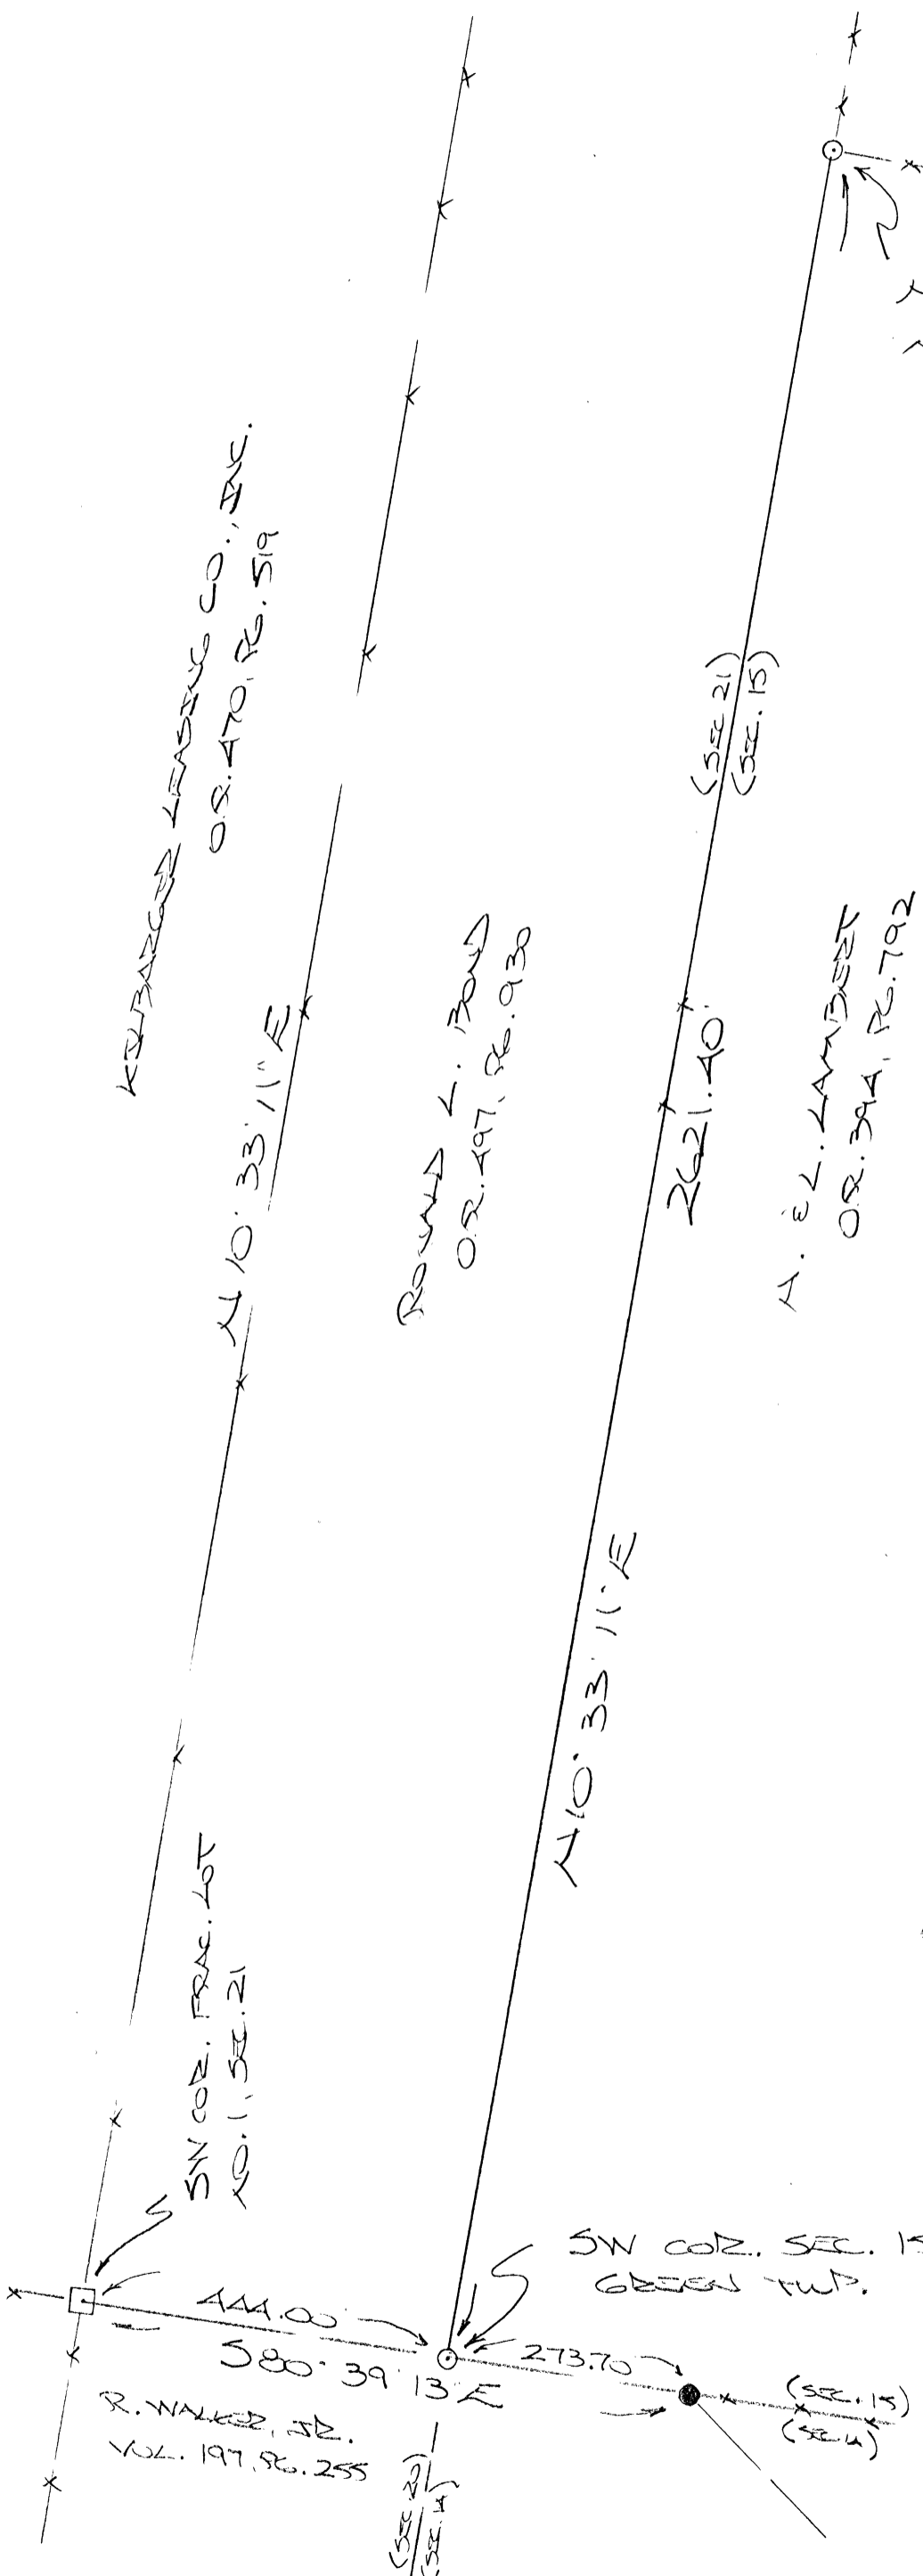 KILBARGER LEASING CO., INC.
O.R. 470, PG. 519
N 10° 33' 11" E
RONALD L. BOND
O.R. 497, PG. 930
(SEC 21)
(SEC. 15)
2621.40'
N 10° 33' 11" E
& L. LAMBERT
O.R. 394, PG. 792
SW COR. FRAC. LOT
NO. 1, SEC. 21
SW COR. SEC. 15
GREEN TWP.
444.00'
S 80° 39' 13" E
273.70'
R. WALKER, JR.
VOL. 197, PG. 255
(SEC. 15)
(SEC 20)